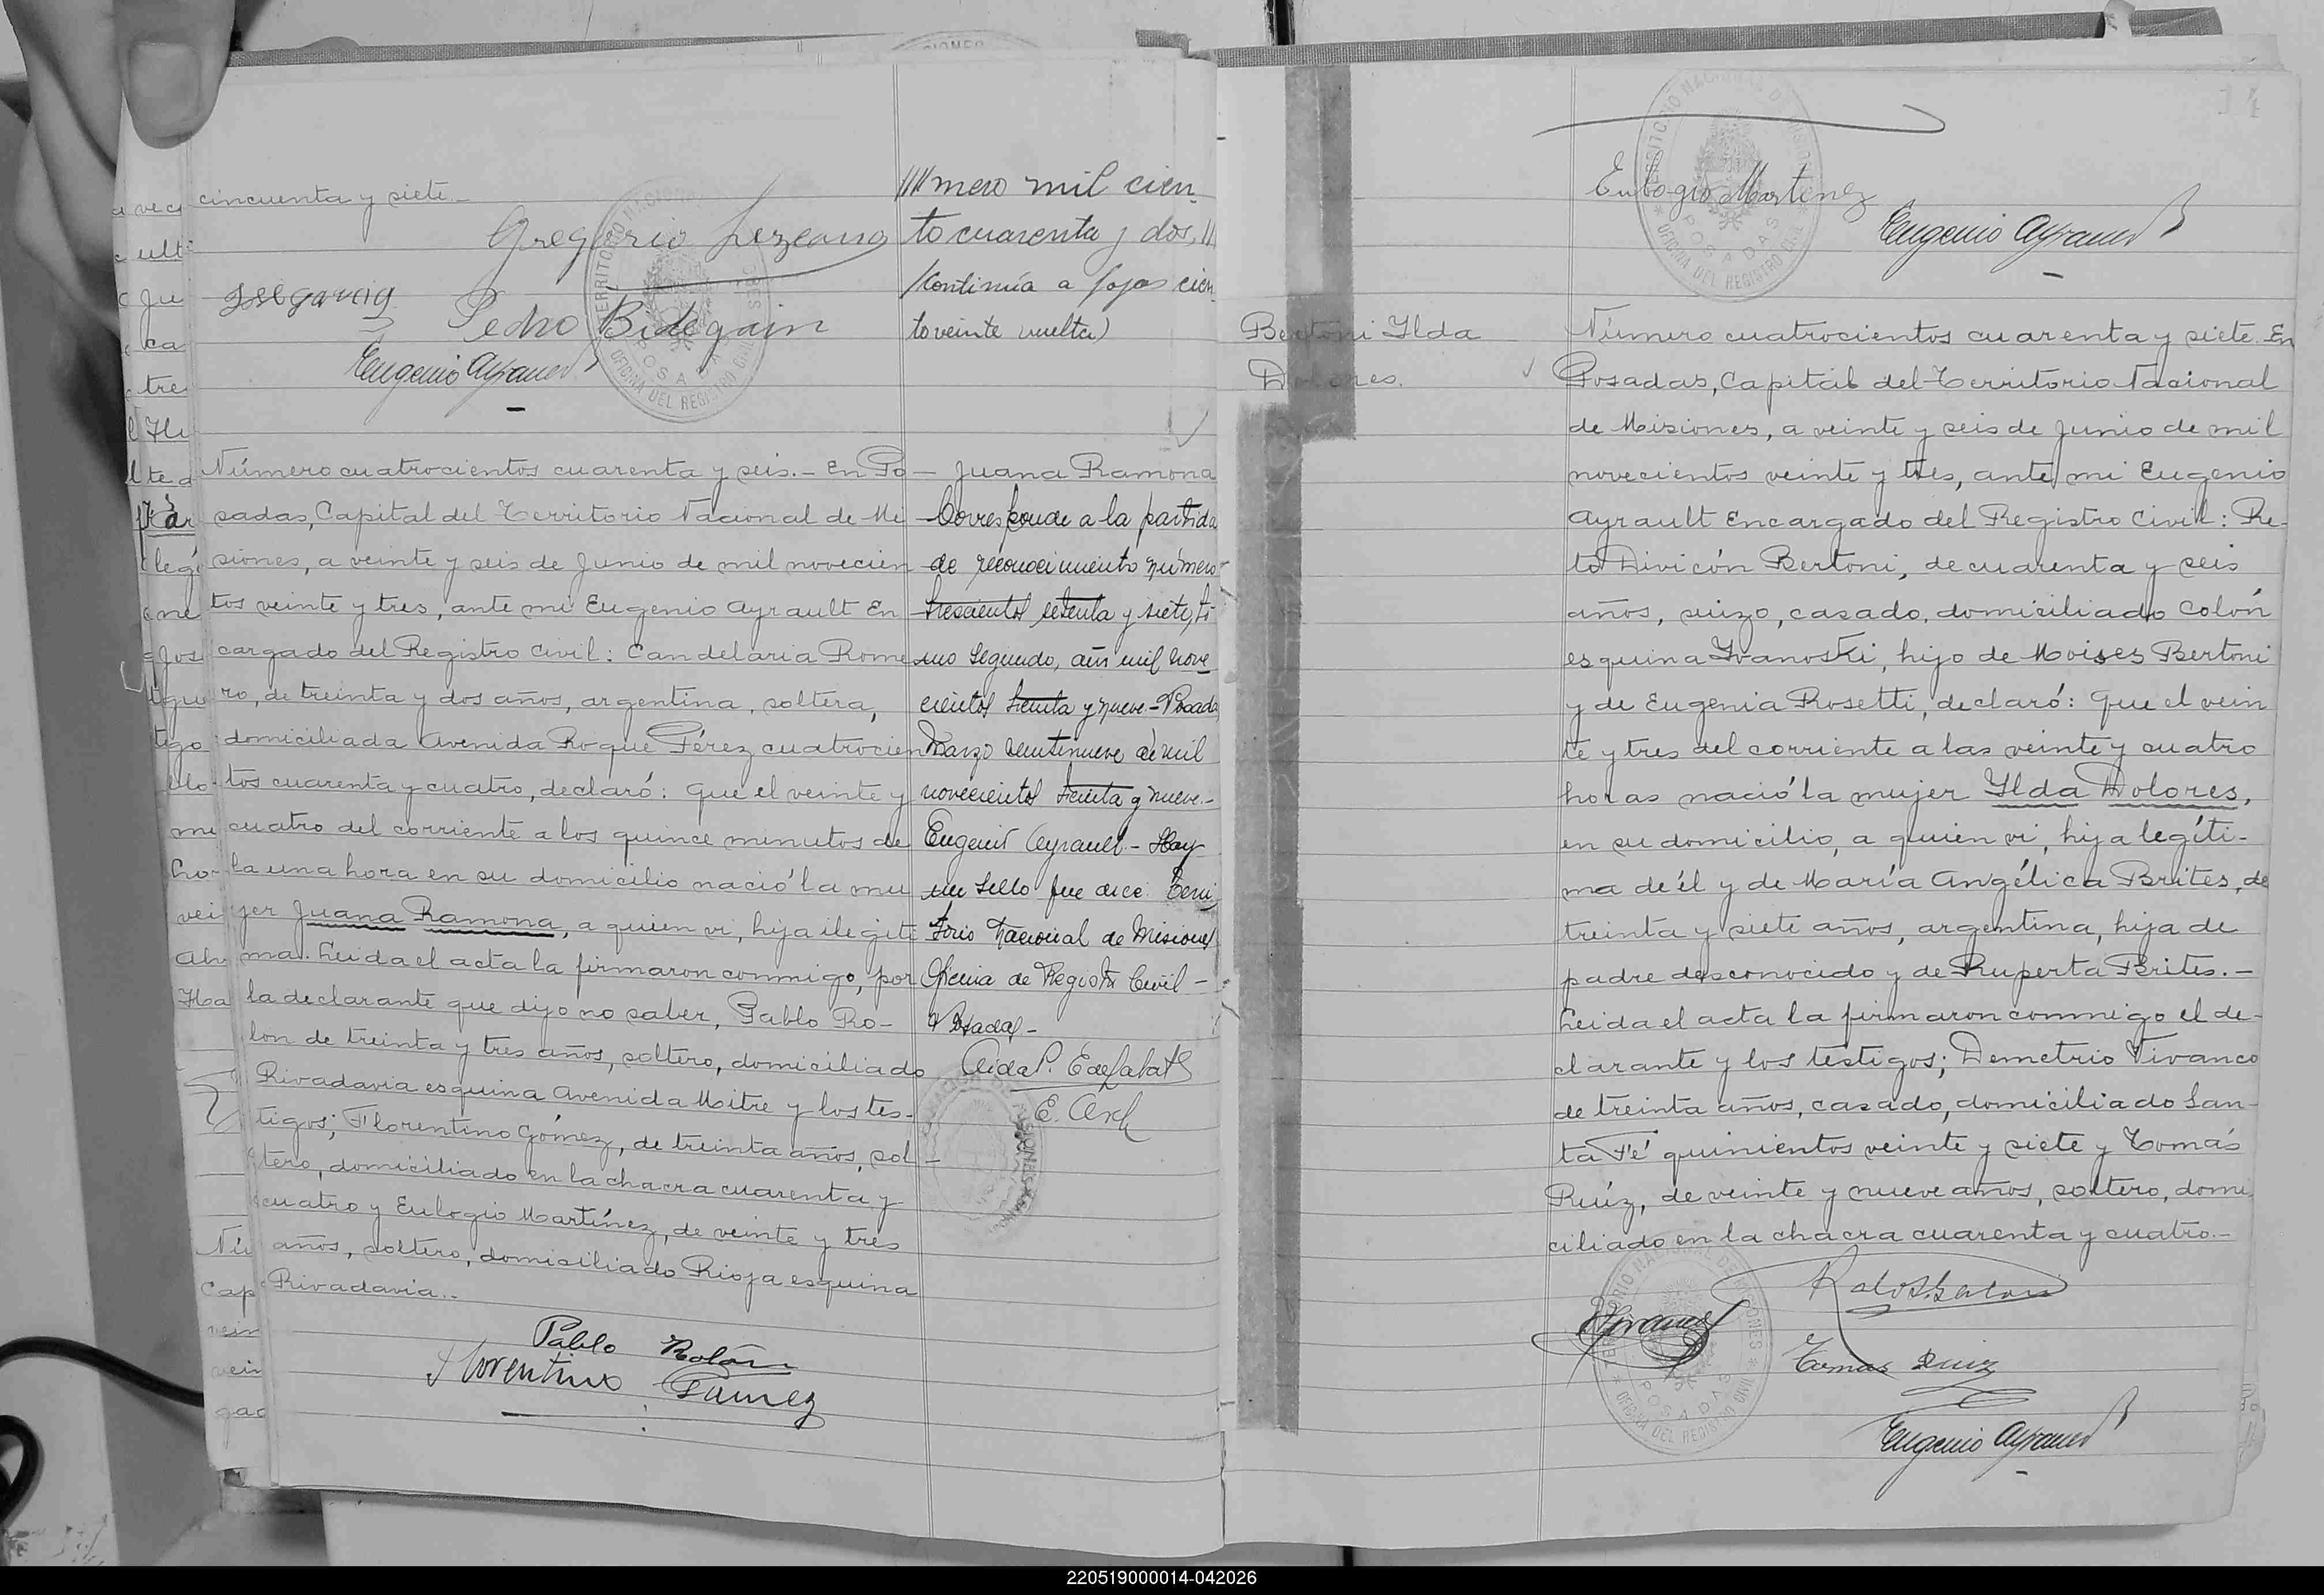 cincuenta y siete.—
Gregorio Lezcano
Pedro Bidegain
Eugenio Ayrault
////mero mil cien-
to cuarenta y dos, ///
(Continúa a fojas cien-
to veinte vuelta)
Número cuatrocientos cuarenta y seis.— En Po
sadas, Capital del Territorio Nacional de Mi
siones, a veinte y seis de Junio de mil novecien
tos veinte y tres, ante mi Eugenio Ayrault En
cargado del Registro Civil: Candelaria Rome
ro, de treinta y dos años, argentina, soltera,
domiciliada Avenida Roque Pérez cuatrocien
tos cuarenta y cuatro, declaró: Que el veinte y
cuatro del corriente a los quince minutos de
la una hora en su domicilio nació la mu
jer Juana Ramona, a quien vi, hija ilegíti
ma. Leida el acta la firmaron conmigo, por
la declarante que dijo no saber, Pablo Ro-
lon de treinta y tres años, soltero, domiciliado
Rivadavia esquina Avenida Mitre y los tes-
tigos; Florentino Gómez, de treinta años, sol-
tero, domiciliado en la chacra cuarenta y
cuatro y Eulogio Martínez, de veinte y tres
años, soltero, domiciliado Rioja esquina
Rivadavia..
Pablo Rolón
Florentino Gamez
— Juana Ramona
— Corresponde a la partida
de reconocimiento número
trescientos setenta y siete, to-
mo segundo, año mil nove
cientos treinta y nueve.- Posadas
Marzo veintinueve de mil
novecientos treinta y nueve.-
Eugenio Ayrault.- Hay
un sello que dice: Terri
torio Nacional de Misiones
Oficina de Registro Civil -
Posadas -
Aida P.
TERRITORIO NACIONAL DE MISIONES
OFICINA DEL REGISTRO CIVIL
POSADAS
Eulogio Martinez
Eugenio Ayrault
Bertoni Ylda
Dolores.
Número cuatrocientos cuarenta y siete. En
Posadas, Capital del Territorio Nacional
de Misiones, a veinte y seis de Junio de mil
novecientos veinte y tres, ante mi Eugenio
Ayrault Encargado del Registro Civil: Re-
to Divicón Bertoni, de cuarenta y seis
años, suizo, casado, domiciliado Colón
esquina Ivanoski, hijo de Moises Bertoni
y de Eugenia Rosetti, declaró: Que el vein
te y tres del corriente a las veinte y cuatro
horas nació la mujer Ylda Dolores,
en su domicilio, a quien vi, hija legíti-
ma de él y de María Angélica Brites, de
treinta y siete años, argentina, hija de
padre desconocido y de Ruperta Brites.—
Leida el acta la firmaron conmigo el de-
clarante y los testigos; Demetrio Vivanco
de treinta años, casado, domiciliado San-
ta Fé quinientos veinte y siete y Tomás
Ruíz, de veinte y nueve años, soltero, domi
ciliado en la chacra cuarenta y cuatro.—
Tomas Ruiz
Eugenio Ayrault
220519000014-042026